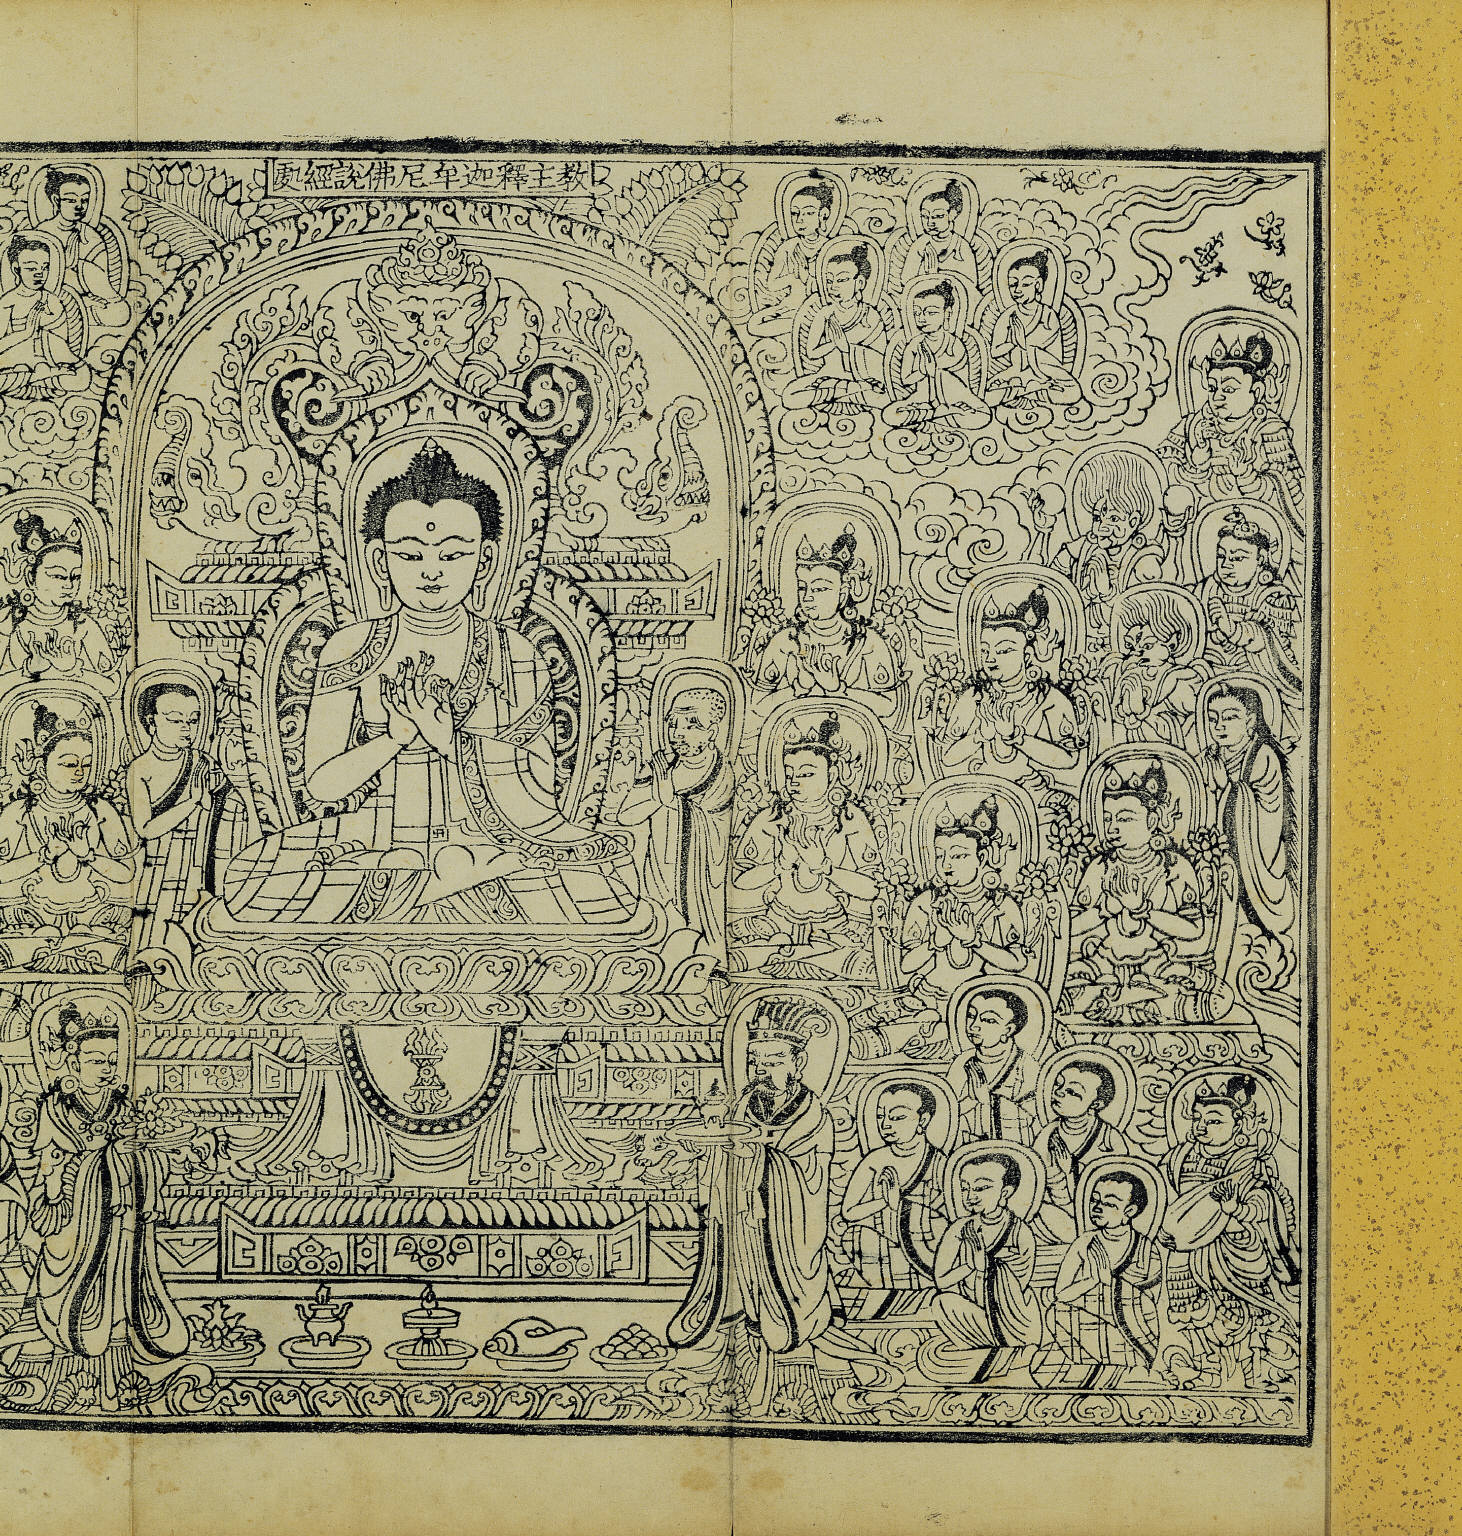 教主釋迦牟尼佛說經處